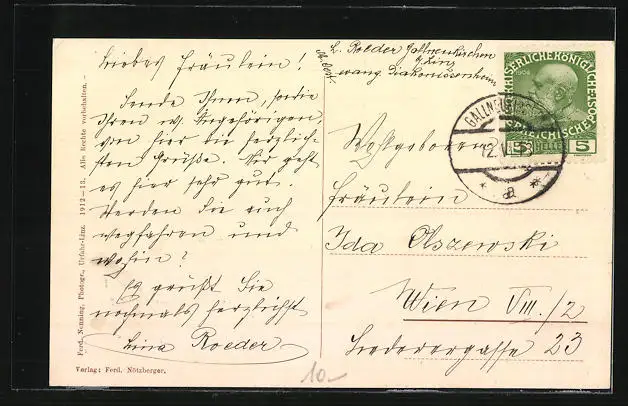 Liebes Fräulein!
Sende Ihnen, sowie
Ihren w. Angehörigen
von hier die herzlich-
sten Grüße. Mir geht
es hier sehr gut.
Werden Sie auch
wegfahren und
wohin?
Es grüßt Sie
nochmals herzlichst
Lina Roeder
L. Roeder Gallneukirchen
b/Linz
Ob. Öst.
evang. Diakonissenheim
Wohlgeboren
Fräulein
Ida Olszewski
Wien VIII./2
Lederergasse 23
KAISERLICHE KÖNIGLICHE ÖSTERREICHISCHE POST
1908
HELLER 5
GALLNEUKIRCHEN
12.VI.13
* a *
Ferd. Nenning, Photogr., Urfahr-Linz. 1912-13. Alle Rechte vorbehalten.
Verlag: Ferd. Nötzberger.
10-